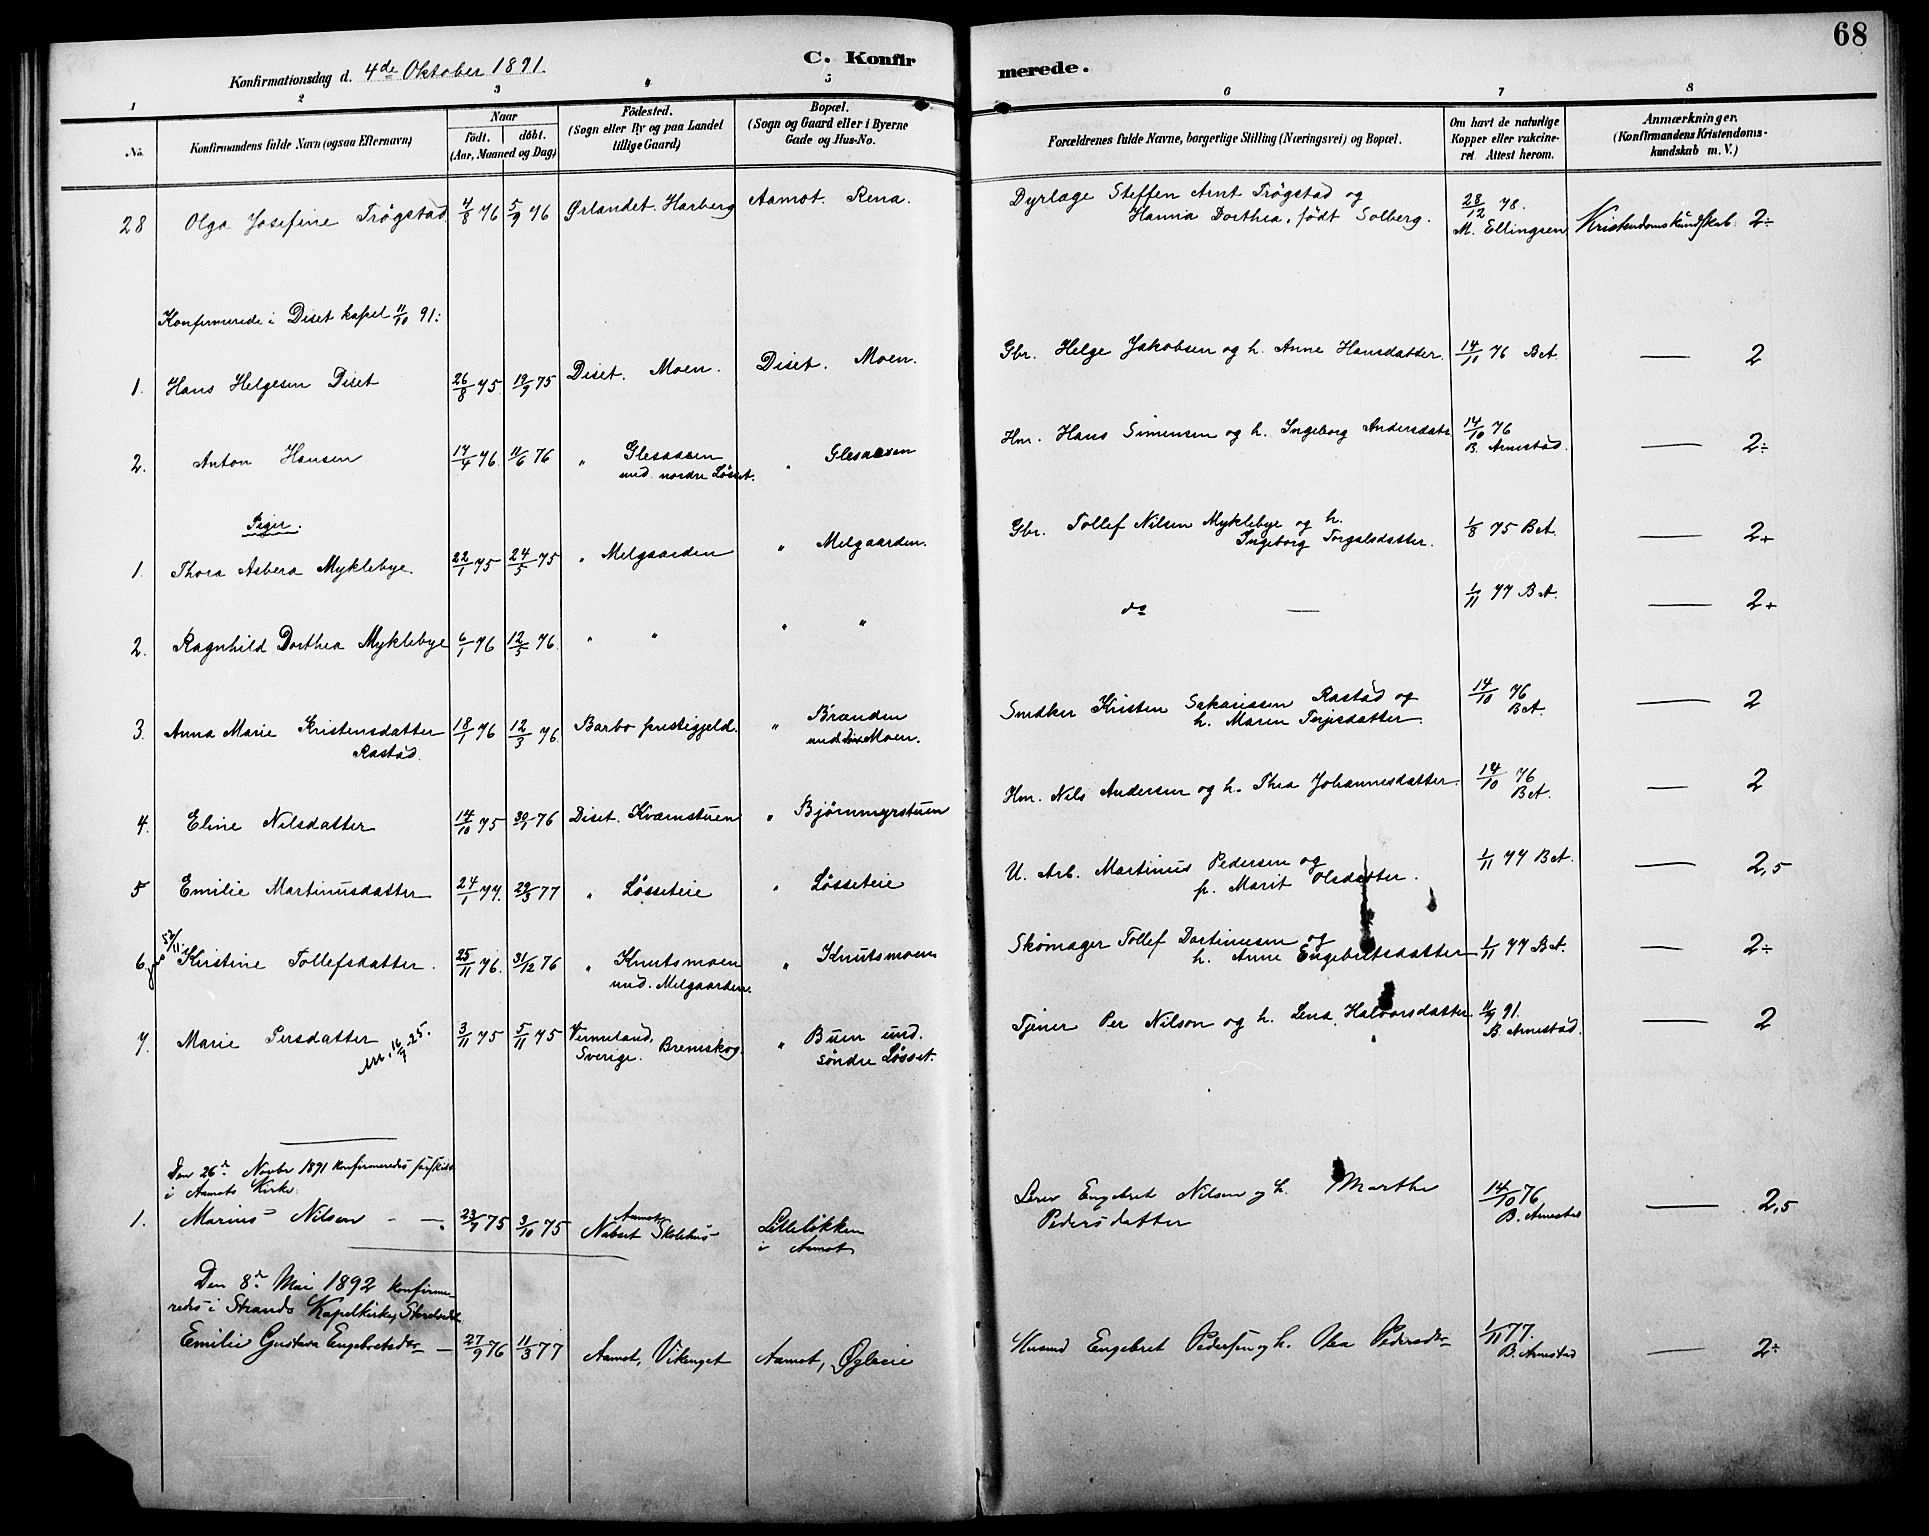 68
C. Konfirmerede.
Konfirmationsdag d. 4de Oktober 1891.
1 2 3 4 5 6 7 8
No.
Konfirmandens fulde Navn (ogsaa Efternavn)
Naar
Födt. döbt.
(Aar, Maaned og Dag)
Födested.
(Sogn eller By og paa Landet
tillige Gaard)
Bopæl.
(Sogn og Gaard eller i Byerne
Gade og Hus-No.
Forældrenes fulde Navne, borgerlige Stilling (Næringsvei) og Bopæl.
Om havt de naturlige
Kopper eller vakcine-
ret Attest herom.
Anmærkninger.
(Konfirmandens Kristendoms-
kundskab m. V.)
28 Olga Josefine Trøgstad 4/8 76 5/9 76 Ørlandet. Harberg Aamot. Rena. Dyrlæge Steffen Arnt Trøgstad og
Hanna Dorthea, født Solberg. 28/12 78.
M. Ellingsen Kristendomskundskab 2÷
Konfirmerede i Diset kapel 11/10 91:
1. Hans Helgesen Diset 26/8 75. 19/9 75 Diset. Moen. Diset. Moen. Gbr. Helge Jakobsen og h. Anne Hansdatter. 14/11 76 BA. — 2
2. Anton Hansen 17/4 76. 11/6 76 " Glesaasen
und. nordre Løsset. " Glesaasen Hm. Hans Simensen og h. Ingeborg Andersdatr. 14/10 76
B. Arnestad. — 2÷
Piger.
1. Thora Asbera Myklebye. 22/1 75 24/5 75 " Melgaarden " Melgaarden. Gbr. Tollef Nilsen Myklebye og h.
Ingeborg Torgalsdatter. 1/8 75 BA. — 2+
2. Ragnhild Dorthea Myklebye 6/1 76 12/3 76. " " " " do — 1/11 77 BA. — 2+
3. Anna Marie Kristensdatter
Rastad. 18/1 76 12/3 76. Barbo prestigjeld. " Brænden
und. Moen. Snedker Kristen Sakariassen Rastad og
h. Maren Terjesdatter. 14/10 76
BA. — 2
4. Eline Nilsdatter 14/10 75 30/1 76 Diset. Kværnstuen " Bjørnmyrstuen Hm. Nils Andersen og h. Thea Johannesdatter. 14/10 76
BA. — 2
5 Emilie Martinusdatter 24/1 77. 29/3 77 " Løsseteie " Løsseteie U. Arb. Martinus Pedersen og
p. Marit Olsdatter. 1/11 77 BA. — 2,5
6. Kristine Tollefsdatter. 25/11 76. 31/12 76 " Knutsmoen
und. Melgaarden. " Knutsmoen Skomager Tollef Dortinusen og
h. Anne Engebretsdatter 1/11 77 BA. — 2÷
7. Marie Persdatter 3/11 75 5/11 75 Vermeland,
Sverige. Bremskog. " Buen und.
søndre Løsset. Tjener Per Nilson og h. Lena Halvorsdatter. 11/9 91.
B. Arnestad. — 2
Den 26de Novbr 1891 konfirmeredes
i Aamots Kirke
1. Marius Nilsen — 23/9 75 3/10 75 Aamot
Nabset Skolehus Lilleløkken
i Aamot Engebret Nilsen og h. Marthe
Pedersdatter 14/10 76
B. Arnestad — 2,5
Den 8de Mai 1892 konfirme-
redes i Strands Kapelkirke,
Emilie Gustava Engebretsdtr — 27/9 76 11/3 77 Aamot, Aamot, Husmd Engebret Pedersen og h. Olea Pedersdtr 1/11 77.
B. Arnestad — 2÷